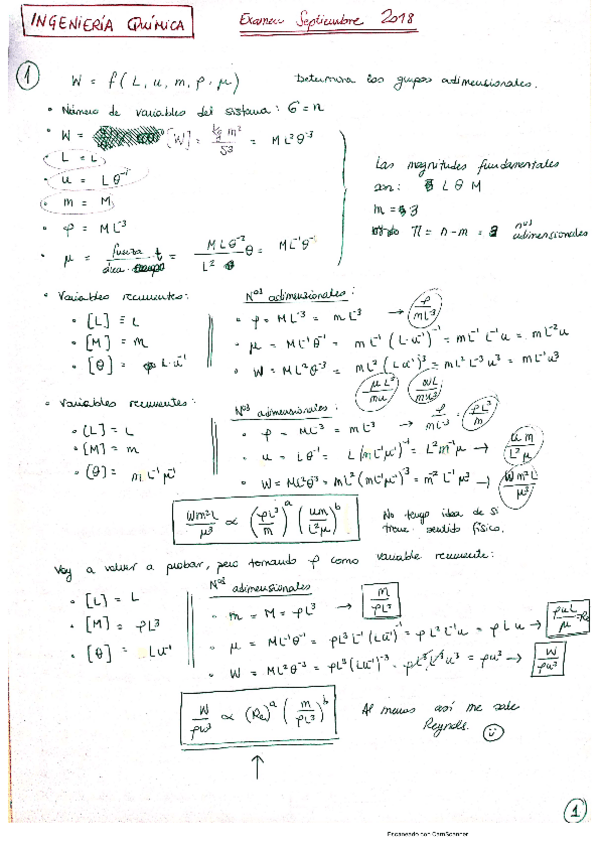 INGENIERÍA QUÍMICA
Examen Septiembre 2018
1
W = f (L, u, m, ρ, μ) Determina los grupos adimensionales.
• Número de variables del sistema: 6 = n
• W = [W] = kg m² / s³ = M L² θ⁻³
• L = L
• u = L θ⁻¹
• m = M
• ρ = M L⁻³
• μ = fuerza · t / área = M L θ⁻² / L² θ = M L⁻¹ θ⁻¹
Las magnitudes fundamentales
son: L θ M
m = 3
π = n - m = 3 nºs adimensionales
• Variables recurrentes:
• [L] ≡ L
• [M] = m
• [θ] = L·u⁻¹
Nºs adimensionales:
• ρ = M L⁻³ = m L⁻³ → ρ / m L⁻³
• μ = M L⁻¹ θ⁻¹ = m L⁻¹ (L u⁻¹)⁻¹ = m L⁻¹ L⁻¹ u = m L⁻² u
• W = M L² θ⁻³ = m L² (L u⁻¹)⁻³ = m L² L⁻³ u³ = m L⁻¹ u³
μ L² / m u WL / m u³
• Variables recurrentes:
• [L] = L
• [M] = m
• [θ] = m L⁻¹ μ⁻¹
Nºs adimensionales:
• ρ = M L⁻³ = m L⁻³ → ρ / m L⁻³ = ρ L³ / m
• u = L θ⁻¹ = L (m L⁻¹ μ⁻¹)⁻¹ = L² m⁻¹ μ → u m / L² μ
• W = M L² θ⁻³ = m L² (m L⁻¹ μ⁻¹)⁻³ = m⁻² L⁻¹ μ³ → W m² L / μ³
W m² L / μ³ ∝ (ρ L³ / m)ᵃ (u m / L² μ)ᵇ
No tengo idea de si
tiene sentido físico.
Voy a volver a probar, pero tomando ρ como variable recurrente:
• [L] = L
• [M] = ρ L³
• [θ] = L u⁻¹
Nºs adimensionales
• m = M = ρ L³ → m / ρ L³
• μ = M L⁻¹ θ⁻¹ = ρ L³ L⁻¹ (L u⁻¹)⁻¹ = ρ L² L⁻¹ u = ρ L u → ρ u L / μ = Re
• W = M L² θ⁻³ = ρ L³ (L u⁻¹)⁻³ = ρ L³ L⁻³ u³ = ρ u³ → W / ρ u³
W / ρ u³ ∝ (Re)ᵃ (m / ρ L³)ᵇ
Al menos así me sale
Reynols.
1
Escaneado con CamScanner